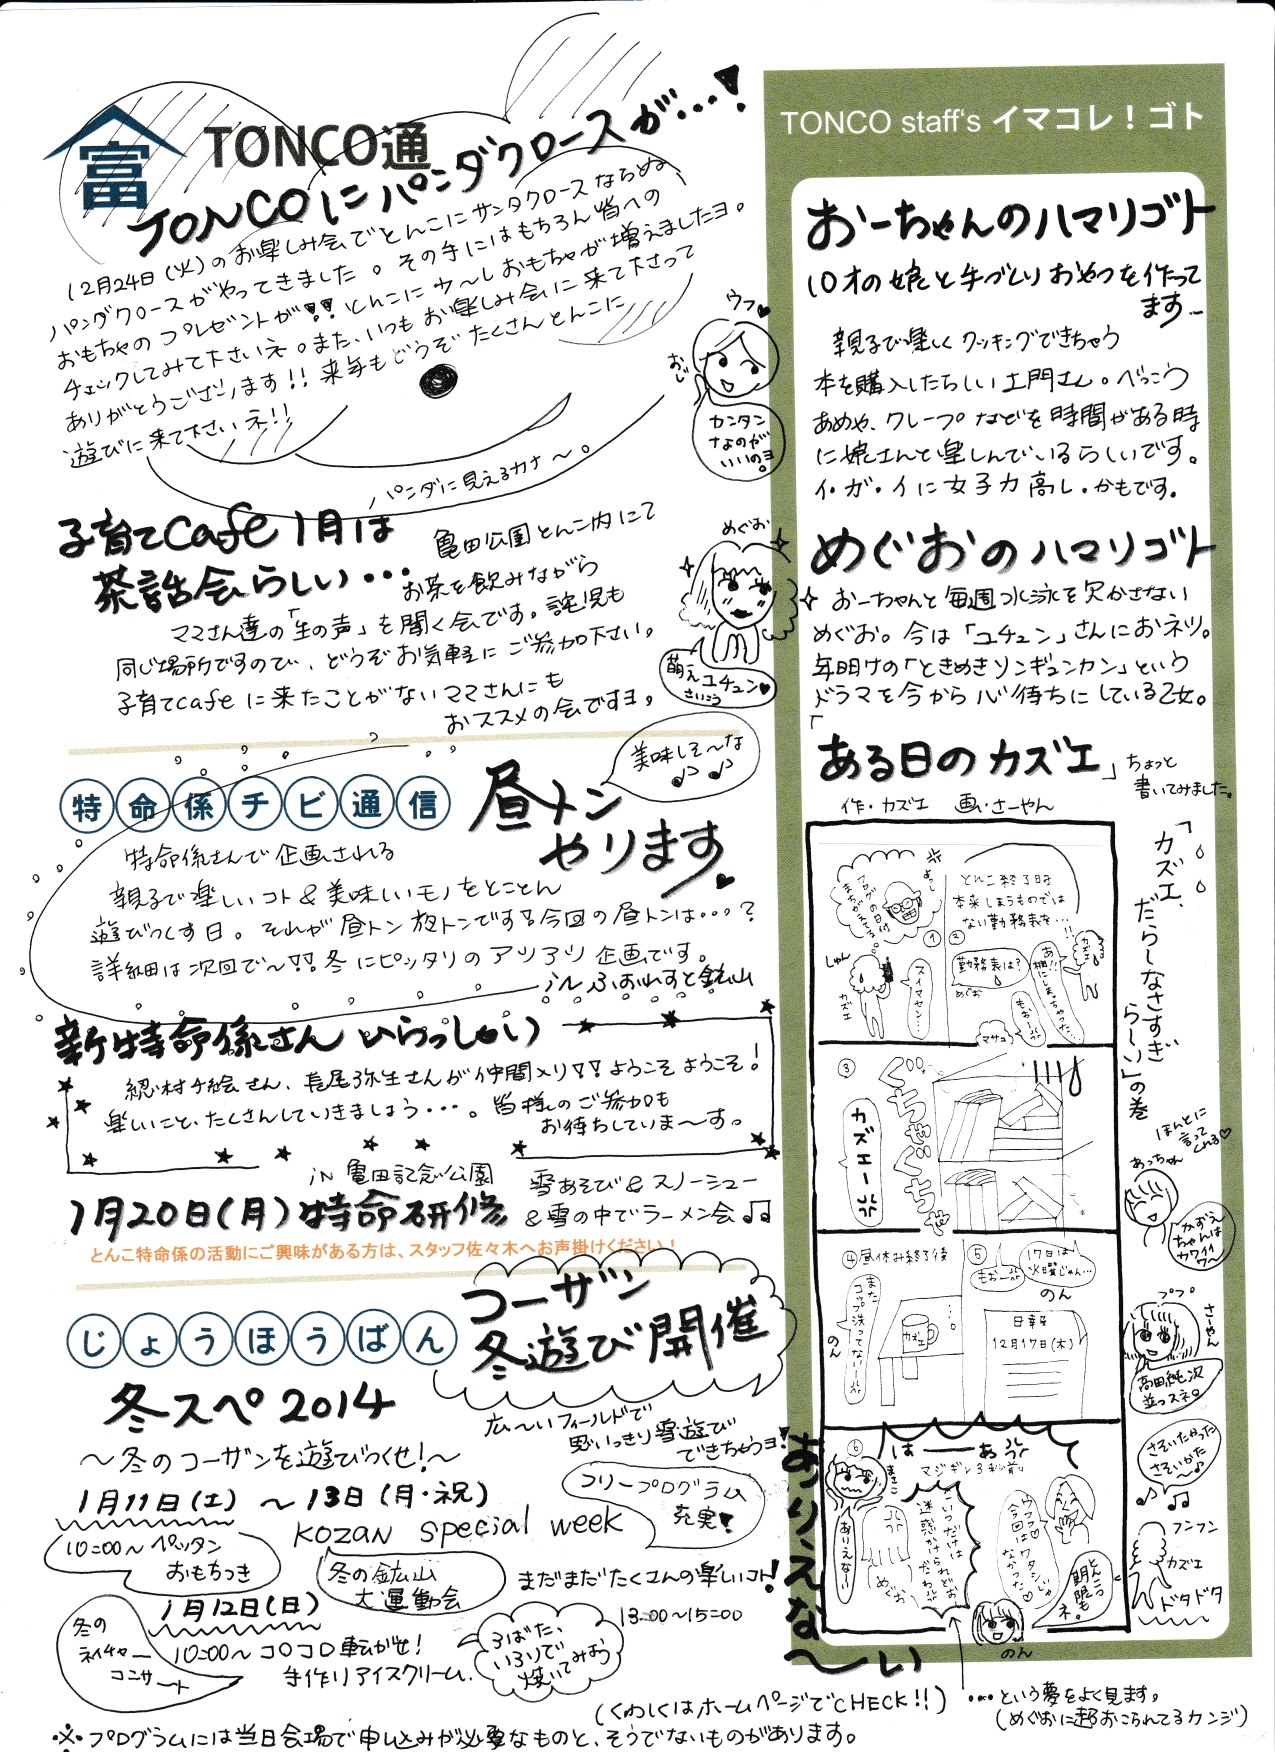 富
TONCO通
TONCOにパンダクロースが…!
12月24日(火)のお楽しみ会でとんこにサンタクロースならぬ
パンダクロースがやってきました。その手にはもちろん皆への
おもちゃのプレゼントが!!とんこにウ〜しおもちゃが増えましたヨ。
チェックしてみて下さいネ。また、いつもお楽しみ会に来て下さって
ありがとうございます!!来年もどうぞたくさんとんこに
遊びに来て下さいネ!!
パンダに見えるカナ〜。
子育てcafe 1月は
茶話会らしい・・・
亀田公園とんこ内にて
お茶を飲みながら
ママさん達の「生の声」を聞く会です。託児も
同じ場所ですので、どうぞお気軽にご参加下さい。
子育てcafeに来たことがないママさんにも
おススメの会ですヨ。
特命係チビ通信
昼トン
やります
美味しそ〜な
特命係さんで企画される
親子で楽しいコト&美味しいモノをとことん
遊びつくす日。それが昼トン 放トンです!今回の昼トンは・・・?
詳細は次回で〜!!冬にピッタリのアツアツ企画です。
iN ふぉれすと鉱山
新特命係さんいらっしゃい
千絵さん、長尾弥生さんが仲間入り!!ようこそようこそ!
楽しいこと、たくさんしていきましょう・・・。皆様のご参加も
お待ちしていま〜す。
iN 亀田記念公園
1月20日(月)特命研修
雪あそび&スノーシュー
&雪の中でラーメン会♫
とんこ特命係の活動にご興味がある方は、スタッフ佐々木へお声掛けください!
じょうほうばん
コーザン
冬遊び開催
冬スペ2014
〜冬のコーザンを遊びつくせ!〜
広〜いフィールドで
思いっきり雪遊び
できちゃうヨ!
1月11日(土)〜13日(月・祝)
KOZAN special week
フリープログラム
充実!
10:00〜ペッタン
おもちつき
冬の鉱山
大運動会
まだまだたくさんの楽しいコト!
1月12日(日)
13:00〜15:00
冬の
ネイチャー
コンサート
10:00〜コロコロ転がせ!
手作りアイスクリーム
ろばた、
いろりで
焼いてみよう
(くわしくはホームページでCHECK!!)
※プログラムには当日会場で申し込みが必要なものと、そうでないものがあります。
TONCO staff's イマコレ!ゴト
おーちゃんのハマリゴト
10才の娘と手づくりおやつを作って
ます…
親子で楽しくクッキングできちゃう
本を購入したらしい土門さん。べっこう
あめや、クレープなどを時間がある時
に娘さんと楽しんでいるらしいです。
イ・ガ・イに女子力高し・かもです。
ウフ♥
おーじ
カンタン
なのが
いいのヨ。
めぐおのハマリゴト
おーちゃんと毎週水泳を欠かさない
めぐお。今は「ユチュン」さんにおネツ。
年明けの「ときめきソンギュンカン」という
ドラマを今から心待ちにしている乙女。
めぐお
萌えユチュン♥
さいこう
「ある日のカズエ」
ちょっと
書いてみました。
作・カズエ 画・さーやん
「カズエ、
だら〜しなさすぎ
ら〜い」の巻
①
ブログの日付
まちがえてる
よっし
しゅん
スイマセン…
カズエ
②
とんこ終了時
本来しまうものでは
ない勤務表を…
勤務表は?
めぐお
あ!!
棚にしまっちゃった…
カズエ
もお〜
マサコ
③
ぐちゃぐちゃ
カズエー
④昼休み終了後
また
コップ洗ってない〜!
のん
カズエ
⑤
17日は
火曜じゃん…
もお〜
のん
日報
12月17日(木)
⑥
はーーあ
マジギレ3秒前
まさこ
ありえない
めぐお
こいつだけは
迷惑かけられどおしだわ
ウフフ♡
今回はワタシじゃ
なかった♡
とんこつ
期限も
ネ。
のん
ありえな〜い
…という夢をよく見ます。
(めぐおに超おこられてるカンジ)
ほんとに
言って
くれる♡
あっちゃん
かずえ
ちゃんは
カワイイ
ワ〜
ププ
さーやん
高田純次
並っスネ。
さそいたかった
さそいかた〜
フンフン
カズエ
ドタドタ